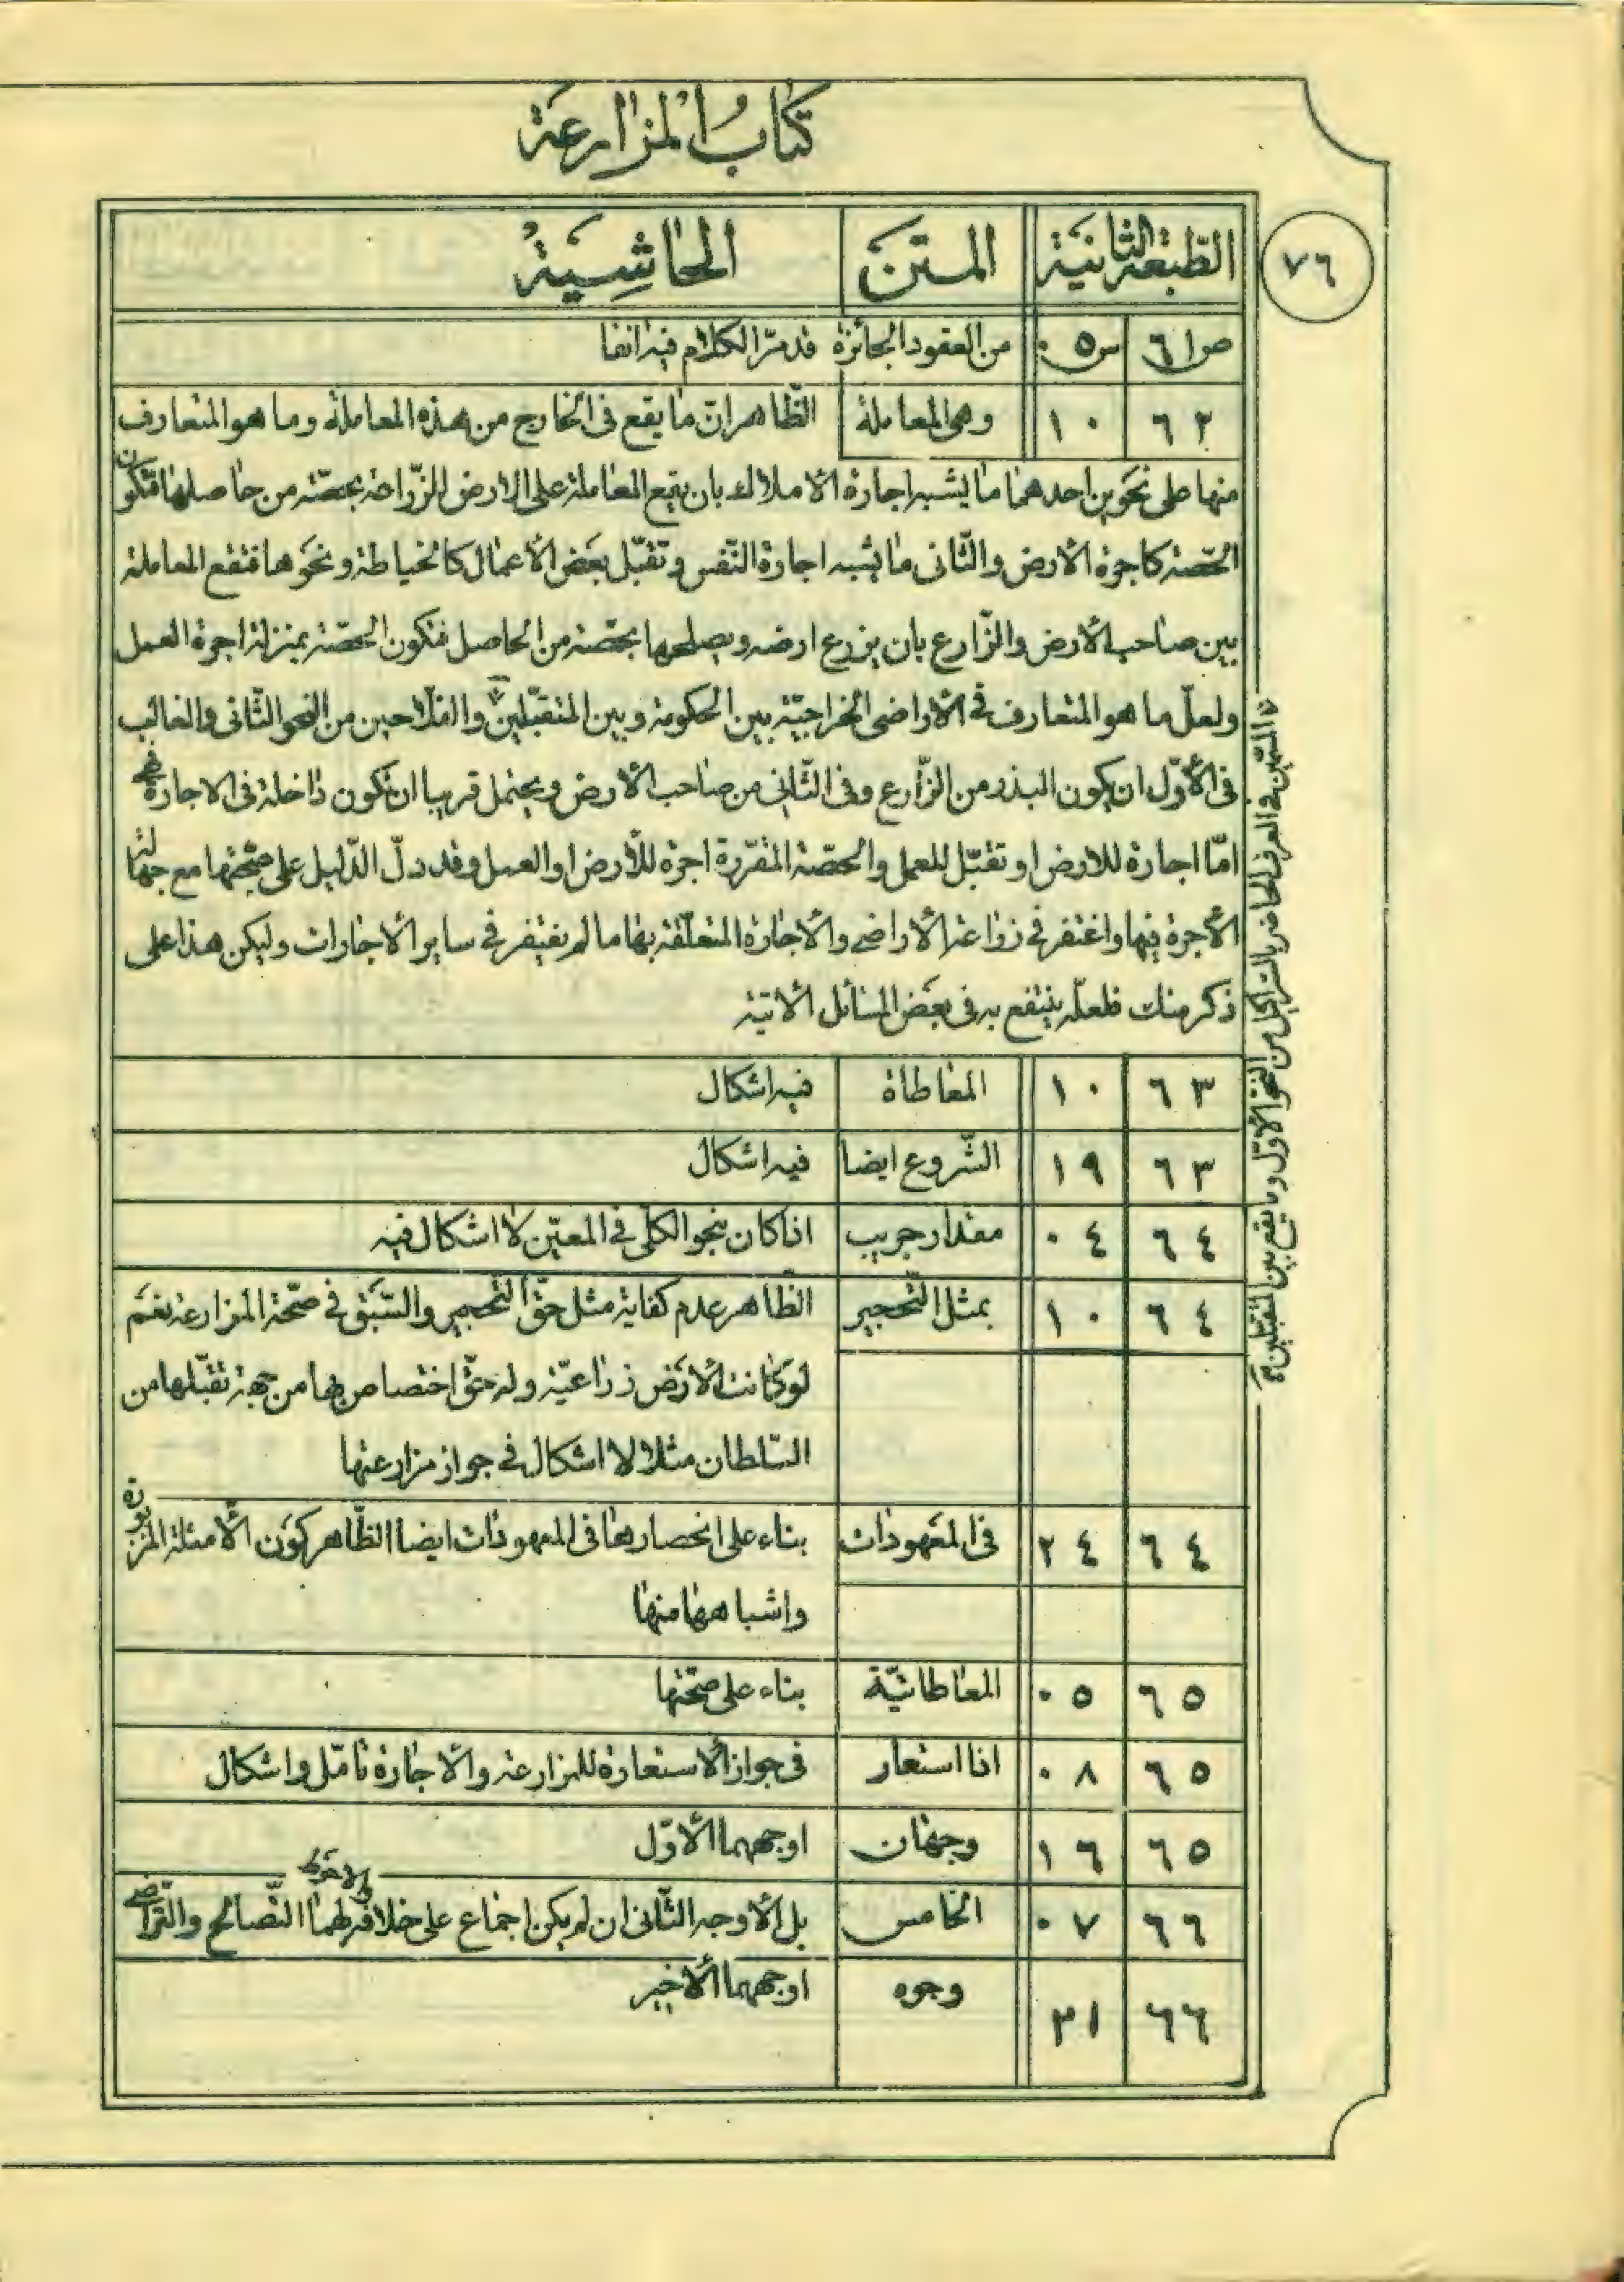 كتاب المزارعة
٧٦
الطّبعة الثانية المتن الحاشية
ص ٦١ س ٠٥ من العقود الجائزة قد مرّ الكلام فيه انفا
٦٢ ١٠ وهى المعاملة الظّاهر انّ ما يقع فى الخارج من هذه المعاملة وما هو المتعارف
منها على نحوين احدهما ما يشبه اجارة الاملاك بان يقع المعاملة على الارض للزّراعة بحصّة من حاصلها فتكون
الحصّة كاجرة الأرض والثّانى ما يشبه اجارة النّفس وتقبّل بعض الأعمال كالخياطة ونحوها فتقع المعاملة
بين صاحب الأرض والزّارع بان يزرع ارضه ويصلحها بحصّة من الحاصل فتكون الحصّة بمنزلة اجرة العمل
ولعلّ ما هو المتعارف فى الأراضى الخراجيّة بين الحكومة وبين المتقبّلين والفلّاحين من النحو الثّانى والغالب
فى الأوّل ان يكون البذر من الزّارع وفى الثّانى من صاحب الأرض ويحتمل قريبا ان تكون داخلة فى الاجارة فهى
امّا اجارة للارض او تقبّل للعمل والحصّة المقرّرة اجرة للأرض او العمل وقد دلّ الدّليل على صحّتها مع جهالة
الأجرة فيها واغتفر فى زراعة الأراضى والأجارة المتعلّقة بها ما لم يغتفر فى ساير الاجارات وليكن هذا على
ذكر منك فلعلّه ينتفع به فى بعض المسائل الاتية
٦٣ ١٠ المعاطاة فيه اشكال
٦٣ ١٩ الشّروع ايضا فيه اشكال
٦٤ ٠٤ مقدار جريب اذا كان بنحو الكلّى فى المعيّن لا اشكال فيه
٦٤ ١٠ بمثل التّحجير الظّاهر عدم كفاية مثل حقّ التّحجير والسّبق فى صحّة المزارعة نعم
لو كانت الأرض زراعيّة وله حقّ اختصاص بها من جهة تقبّلها من
السّلطان مثلا لا اشكال فى جواز مزارعتها
٦٤ ٢٤ فى المعهودات بناء على انحصارها فى المعهودات ايضا الظّاهر كون الأمثلة المزبورة
واشباهها منها
٦٥ ٠٥ المعاطاتيّة بناء على صحّتها
٦٥ ٠٨ اذا استعار فى جواز الأستعارة للمزارعة والأجارة تامّل واشكال
٦٥ ١٦ وجهان اوجههما الأوّل
٦٦ ٠٧ الخامس بل الأوجه الثّانى ان لم يكن اجماع على خلافه والاحوط لهما التّصالح والتّراضى
٦٦ ٢١ وجوه اوجهها الأخير
فى العرف الحاضر من النحو الأوّل وما يقع بين المتقبلين